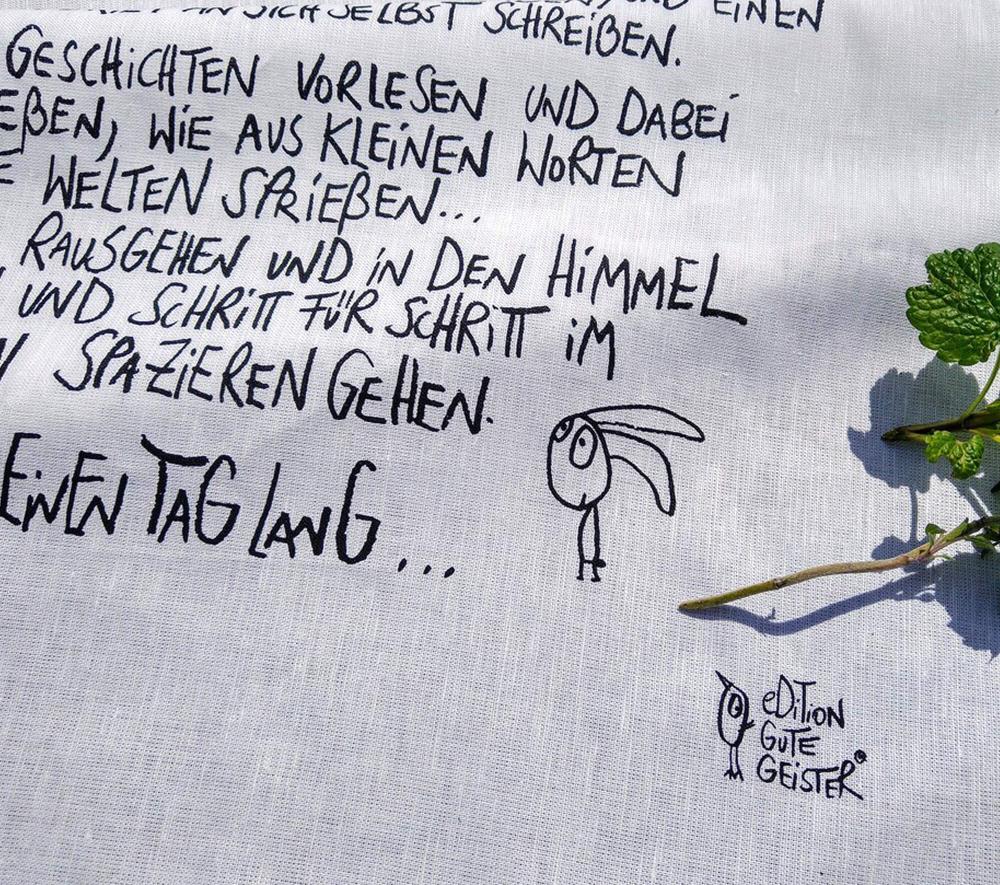 AN SICH SELBST SCHREIBEN. EINEN
GESCHICHTEN VORLESEN UND DABEI
EßEN, WIE AUS KLEINEN WORTEN
E WELTEN SPRIEßEN...
RAUSGEHEN UND IN DEN HIMMEL
UND SCHRITT FÜR SCHRITT IM
SPAZIEREN GEHEN.
EINEN TAG LANG...
eDITION
GUTE
GEISTER